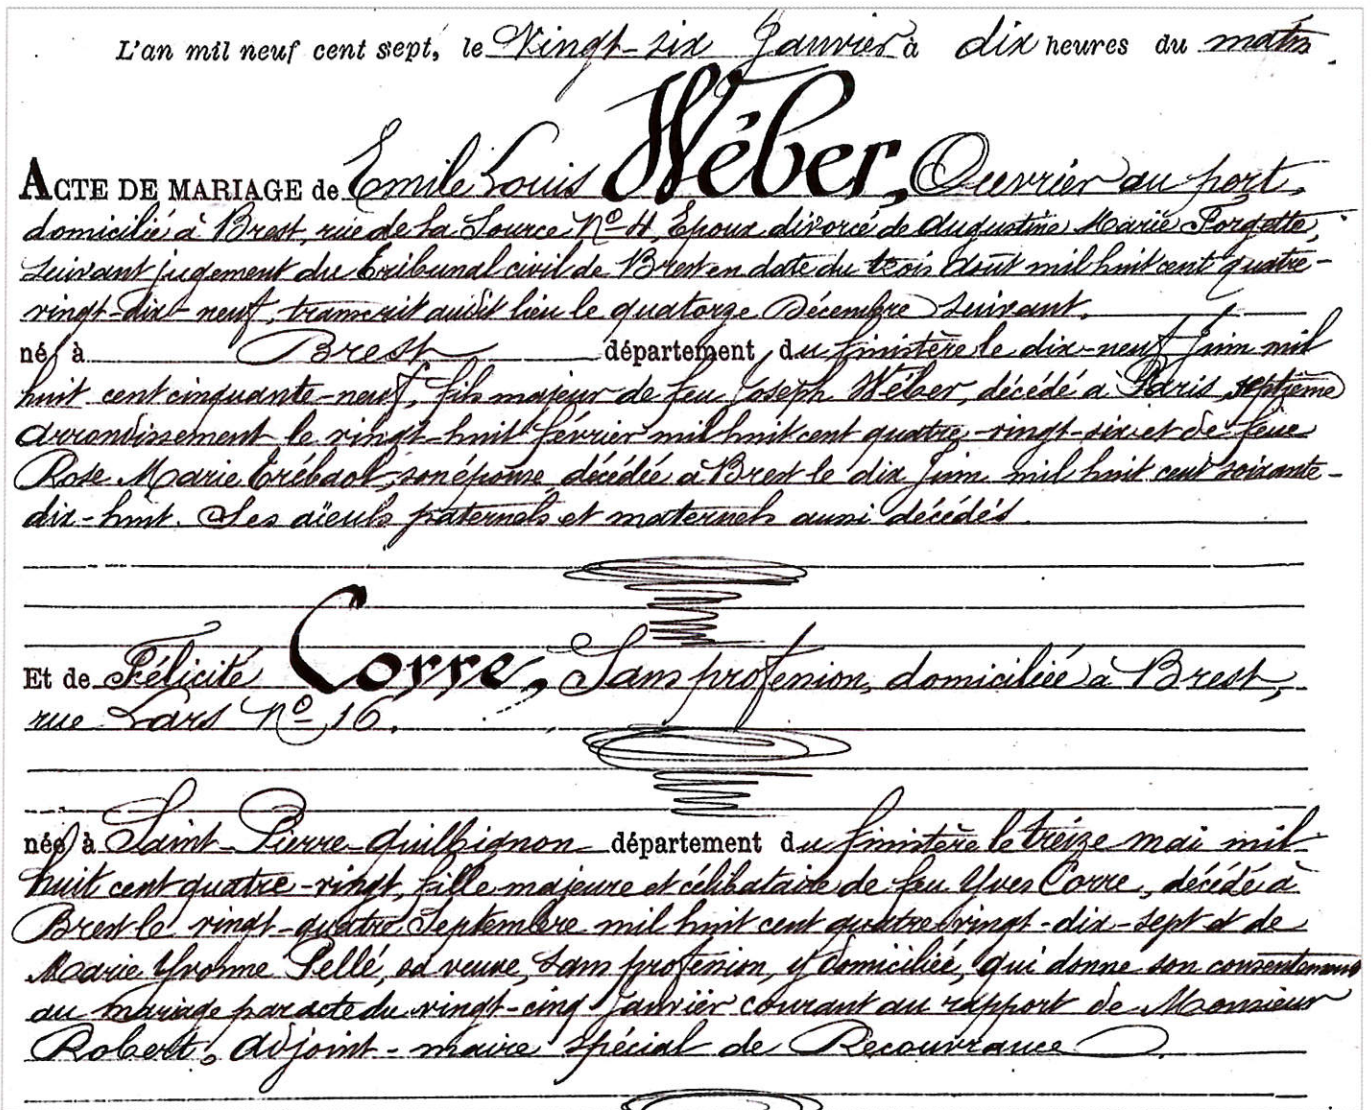 L'an mil neuf cent sept, le Vingt-six Janvier à dix heures du matin.
ACTE DE MARIAGE de Emile Louis Wéber, Ouvrier au port,
domicilié à Brest, rue de la Source Nº 4, Epoux divorcé de Augustine Marie Forgette,
suivant jugement du Tribunal civil de Brest en date du trois Août mil huit cent quatre-
vingt-dix-neuf, transcrit audit lieu le quatorze Décembre suivant.
né à Brest département du Finistère le dix-neuf Juin mil
huit cent cinquante-neuf, fils majeur de feu Joseph Wéber, décédé à Paris, septième
arrondissement le vingt-huit février mil huit cent quatre-vingt-six et de feue
Rose Marie Trébaol, son épouse, décédée à Brest le dix Juin mil huit cent soixante-
dix-huit. Ses aïeuls paternels et maternels aussi décédés.
Et de Félicité Corre, Sans profession, domiciliée à Brest,
rue Lars Nº 16.
née à Saint-Pierre-Quilbignon département du Finistère le treize mai mil
huit cent quatre-vingt, fille majeure et célibataire de feu Yves Corre, décédé à
Brest le vingt-quatre Septembre mil huit cent quatre vingt-dix-sept et de
Marie Yvonne Pellé, sa veuve, sans profession, y domiciliée, qui donne son consentement
au mariage par acte du vingt-cinq Janvier courant au rapport de Monsieur
Robert, adjoint-maire spécial de Recouvrance.